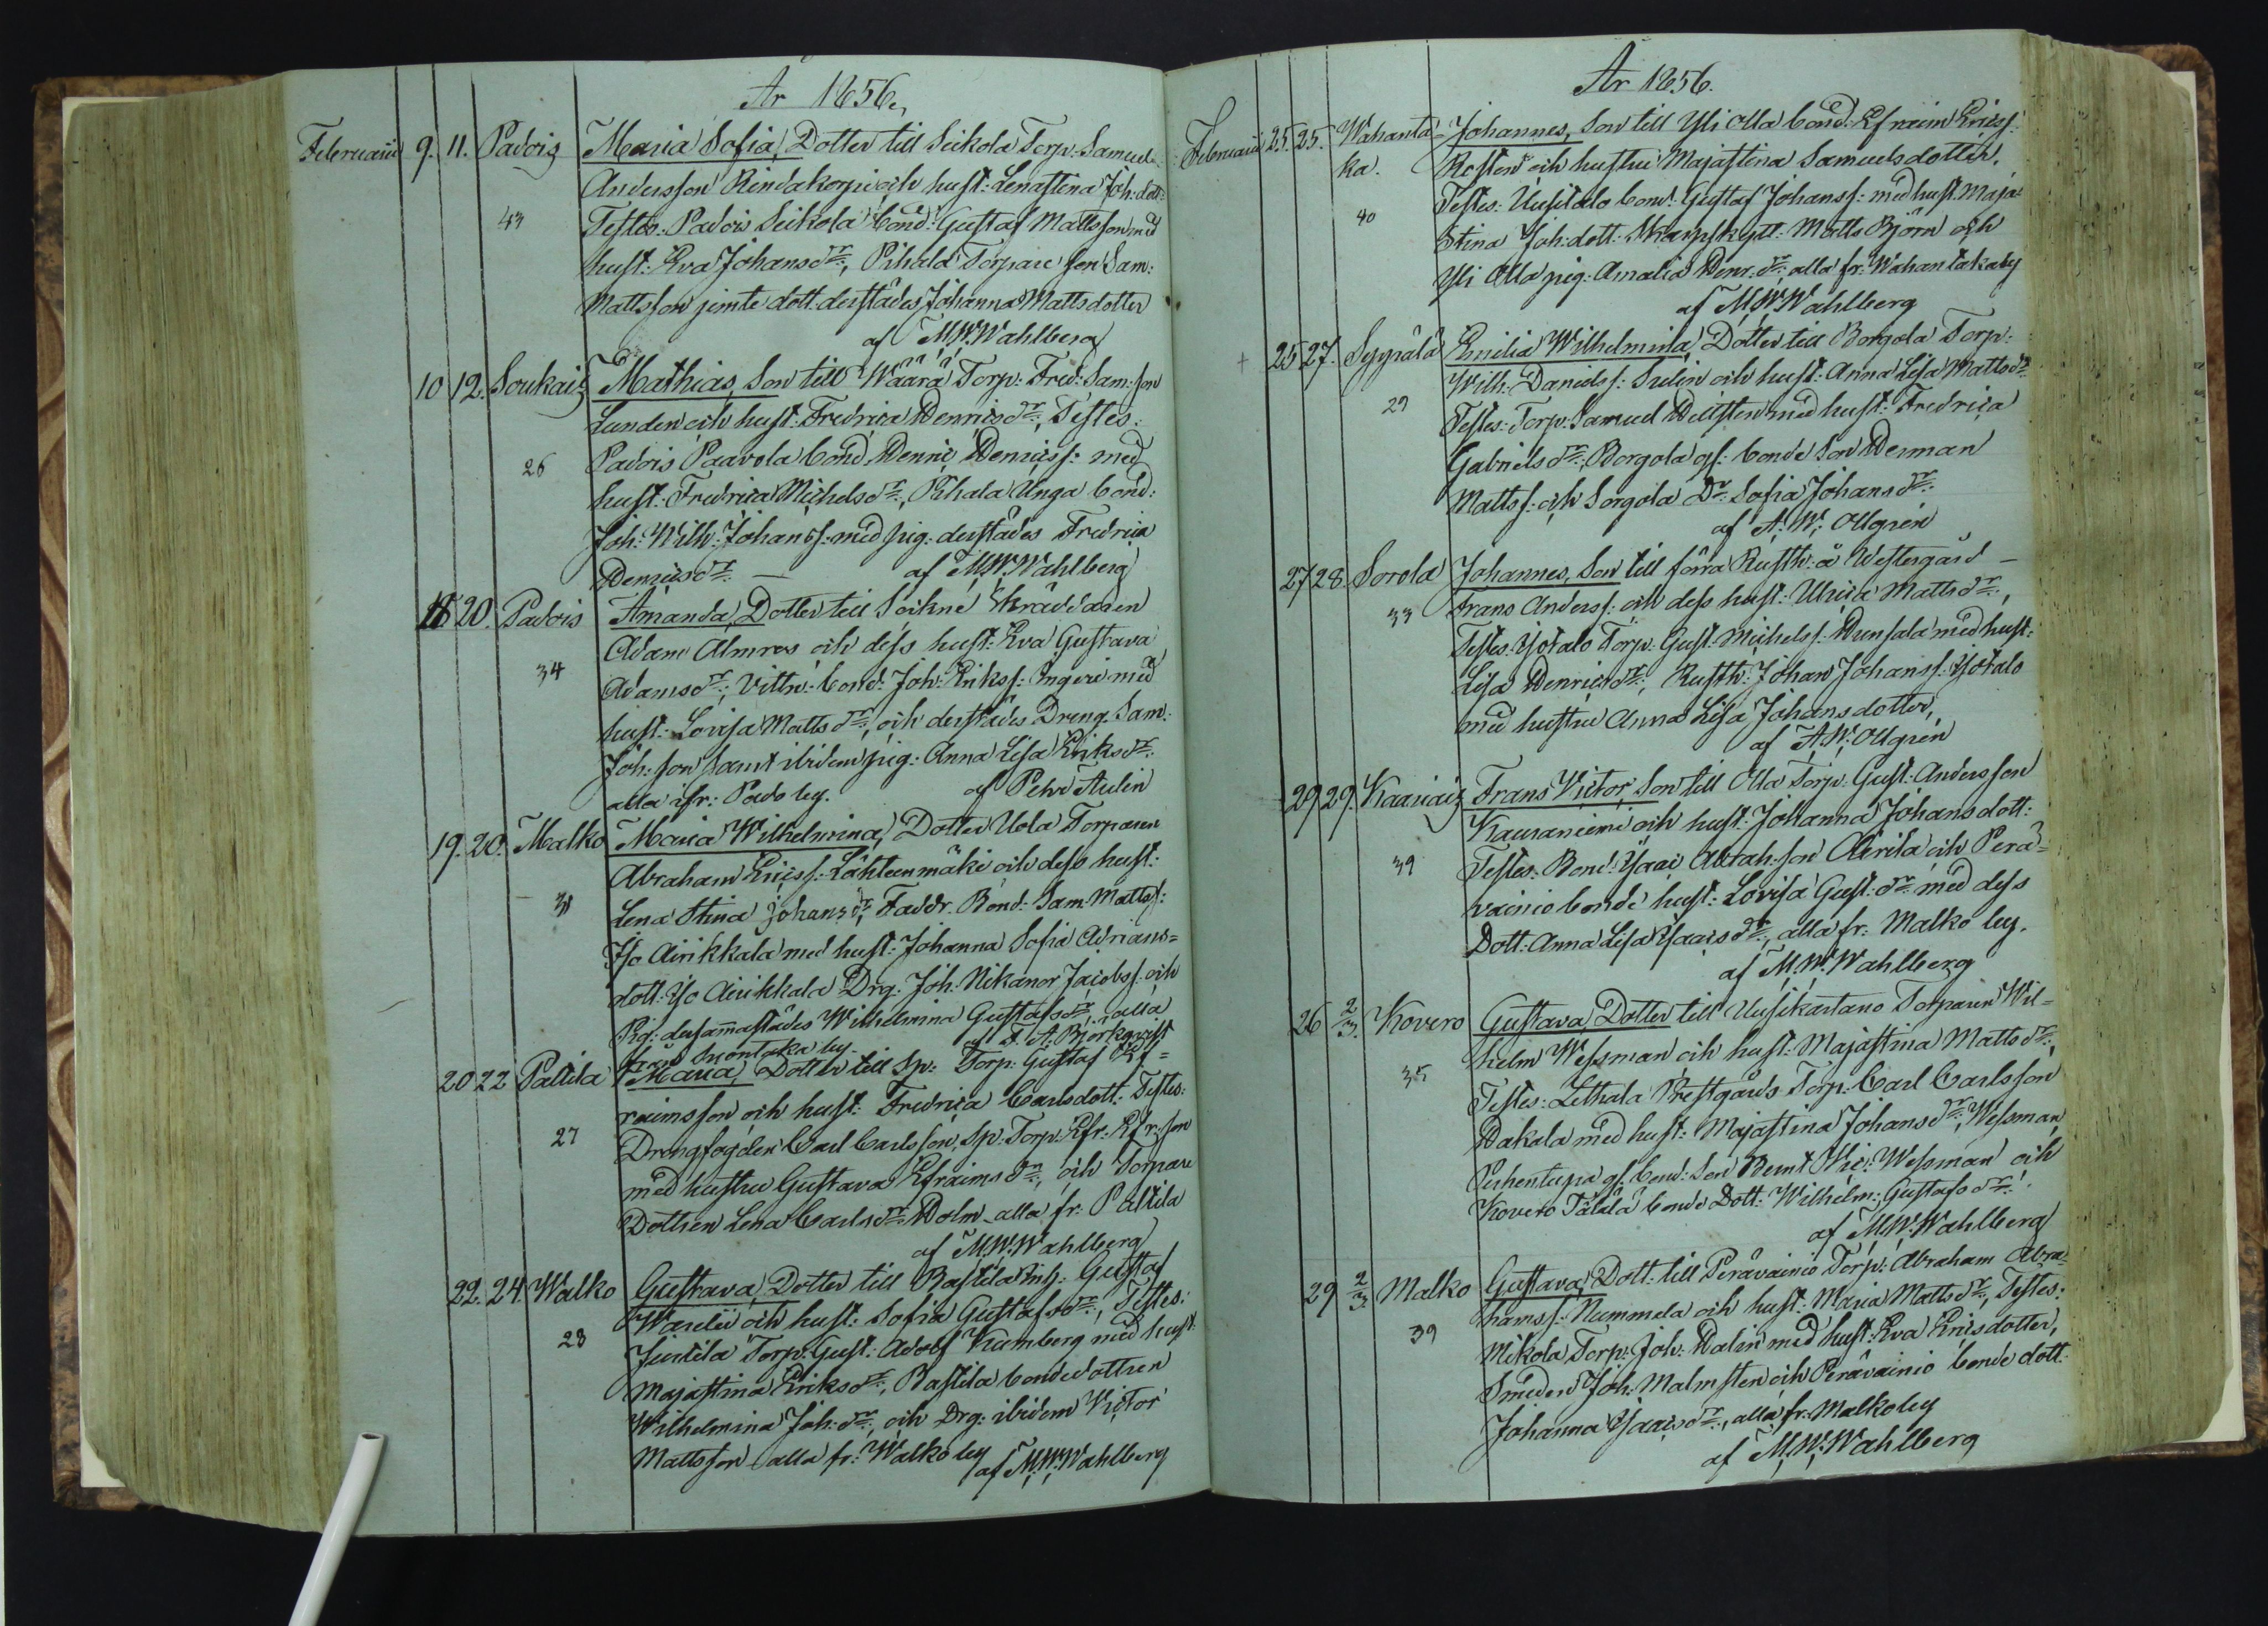 År 1856.
Februarii 9. 11. Padois Maria Sofia, Dotter till Seikola Torp: Samuel
Andersson Rindakorpi och hust: Lenastina Joh: dott:
43 Testes: Padois Seikola Bond: Gustaf Mattsson med
hust: Eva Johansdr:, Pihala Torpare son Sam:
Mattsson jemte dott: derstädes Johanna Mattsdotter
af M.W. Wahlberg
10 12. Soukais Mathias, Son till Wäärä Torp: Fred: Sam: son
Lunden och hust: Fredrica Henricsdr:, Testes:
26 Padois Paavola Bond: Henric Henricss: med
hust: Fredrica Michelsdr:, Pihala Unga Bond:
Joh: Wilh: Johanss: med pig: derstädes Fredrica
Henricsdr: — af M.W. Wahlberg
18 20. Padois Amanda, Dotter till Sockne Skräddaren
34 Adam Almros och dess hust: Eva Gustava
Adamsdr:; Vittn: Bond: Joh: Erikss: Ingeri med
hust: Lovisa Mattsdr:, och derstädes Dreng Sam:
Joh: son samt ibidem pig: Anna Lisa Eriksdr:
alla ifr: Pado by. af Petr Aulin
19. 20. Malko Maria Wilhelmina, Dotter Uola Torparen
Abraham Ericss: Lähteenmäki och dess hust:
31 Lena Stina Johansdr:, Faddr. Bond: Sam: Mattss:
Iso Airikkala med hust: Johanna Sofia Adrians=
dott: Iso Airikkala Drg. Joh: Nikanor Jacobss: och
Pig: dersammastädes Wilhelmina Gustafsdr:, alla
från Suontaka by. af F. A. Björkqvist
20 22 Palttila Maria, Dotter till Sp: Torp: Gustaf Ef=
raimsson och hust: Fredrica Carlsdott: Testes:
27 Drengfogden Carl Carlsson, Sp: Torp: Efr: Efr: son
med hustru Gustava Efraimsdr:, och Torpare
Dottren Lena Carlsdr: Holm, alla fr: Palttila
af M.W. Wahlberg
22. 24. Walko Gustava, Dotter till Bastila Inh: Gustaf
Warelii och hust: Sofia Gustafsdr:, Testes:
28 Juntila Torp: Gust: Adolf Kumberg med hust:
Majastina Eriksdr:, Bastila bondedottren
Wilhelmina Joh: dr:, och Drg: ibidem Victor
Mattsson alla fr: Walko by af M.W. Wahlberg
År 1856.
Februarii 25. 25. Wahanta= Johannes, Son till Yli Olla Bond: Efraim Ericss:
ka. Rosten och hustru Majastina Samuelsdotter.
40 Testes: Uusitalo Bond: Gustaf Johanss: med hust: Maja
Stina Joh: dott: Skarpskytt: Matts Björn och
Yli Olla pig: Amalia Henr. dr:, alla fr: Wahantakaby
af M.W. Wahlberg
+ 25 27. Syypälä Emilia Wilhelmina, Dotter till Borgola Torp:
Wilh: Danielss: Sulin och hust: Anna Lisa Mattsdr:
29 Testes: Torp: Samuel Hellsten med hust: Fredrica
Gabrielsdr:, Borgola gf: Bonde Son Herman
Mattss: och Sorgola Dr: Sofia Johansdr:
af A. W. Ollgren
27 28. Sorola Johannes, Son till förra Rusth: å Westergård —
33 Frans Anderss: och dess hust: Ulrica Mattsdr:,
Testes: Isotalo Torp: Gust: Michelss: Hunsala med hust:
Lisa Henricsdr:, Rusth: Johan Johanss: Isotalo
med hustru Anna Lisa Johansdotter,
af A. W. Ollgren
29 29. Kaariais Frans Victor, Son till Olla Torp: Gust: Andersson
Kauraniemi och hust: Johanna Johansdott:
39 Testes: Bond: Isaac Abrah: son Airila och Perä=
vainio bonde hust: Lovisa Gust: dr: med dess
Dott: Anna Lisa Isacsdr:, alla fr: Malko by.
af M.W. Wahlberg
26 2/3. Kovero Gustava, Dotter till Uusikartano Torparen Wil=
helm Wessman och hust: Majastina Mattsdr:,
35 Testes: Lethala Prestgårds Torp: Carl Carlsson
Hakala med hust: Majastina Johansdr:, Wessman
gf: Bond: Son Bernt Vic: Wessman och
Kovero Tälälä bonde Dott: Wilhelm: Gustafsdr:
af M.W. Wahlberg
29 2/3 Malko Gustava, Dott: till Perävainio Torp: Abraham Abra=
hamss: Nummela och hust: Maria Mattsdr:, Testes:
39 Mikola Torp: Joh: Dalin med hust: Eva Ericsdotter,
Smeden Joh: Malmsten och Perävainio bonde dott
Johanna Isacsdr:, alla fr: Malkoby
af M.W. Wahlberg